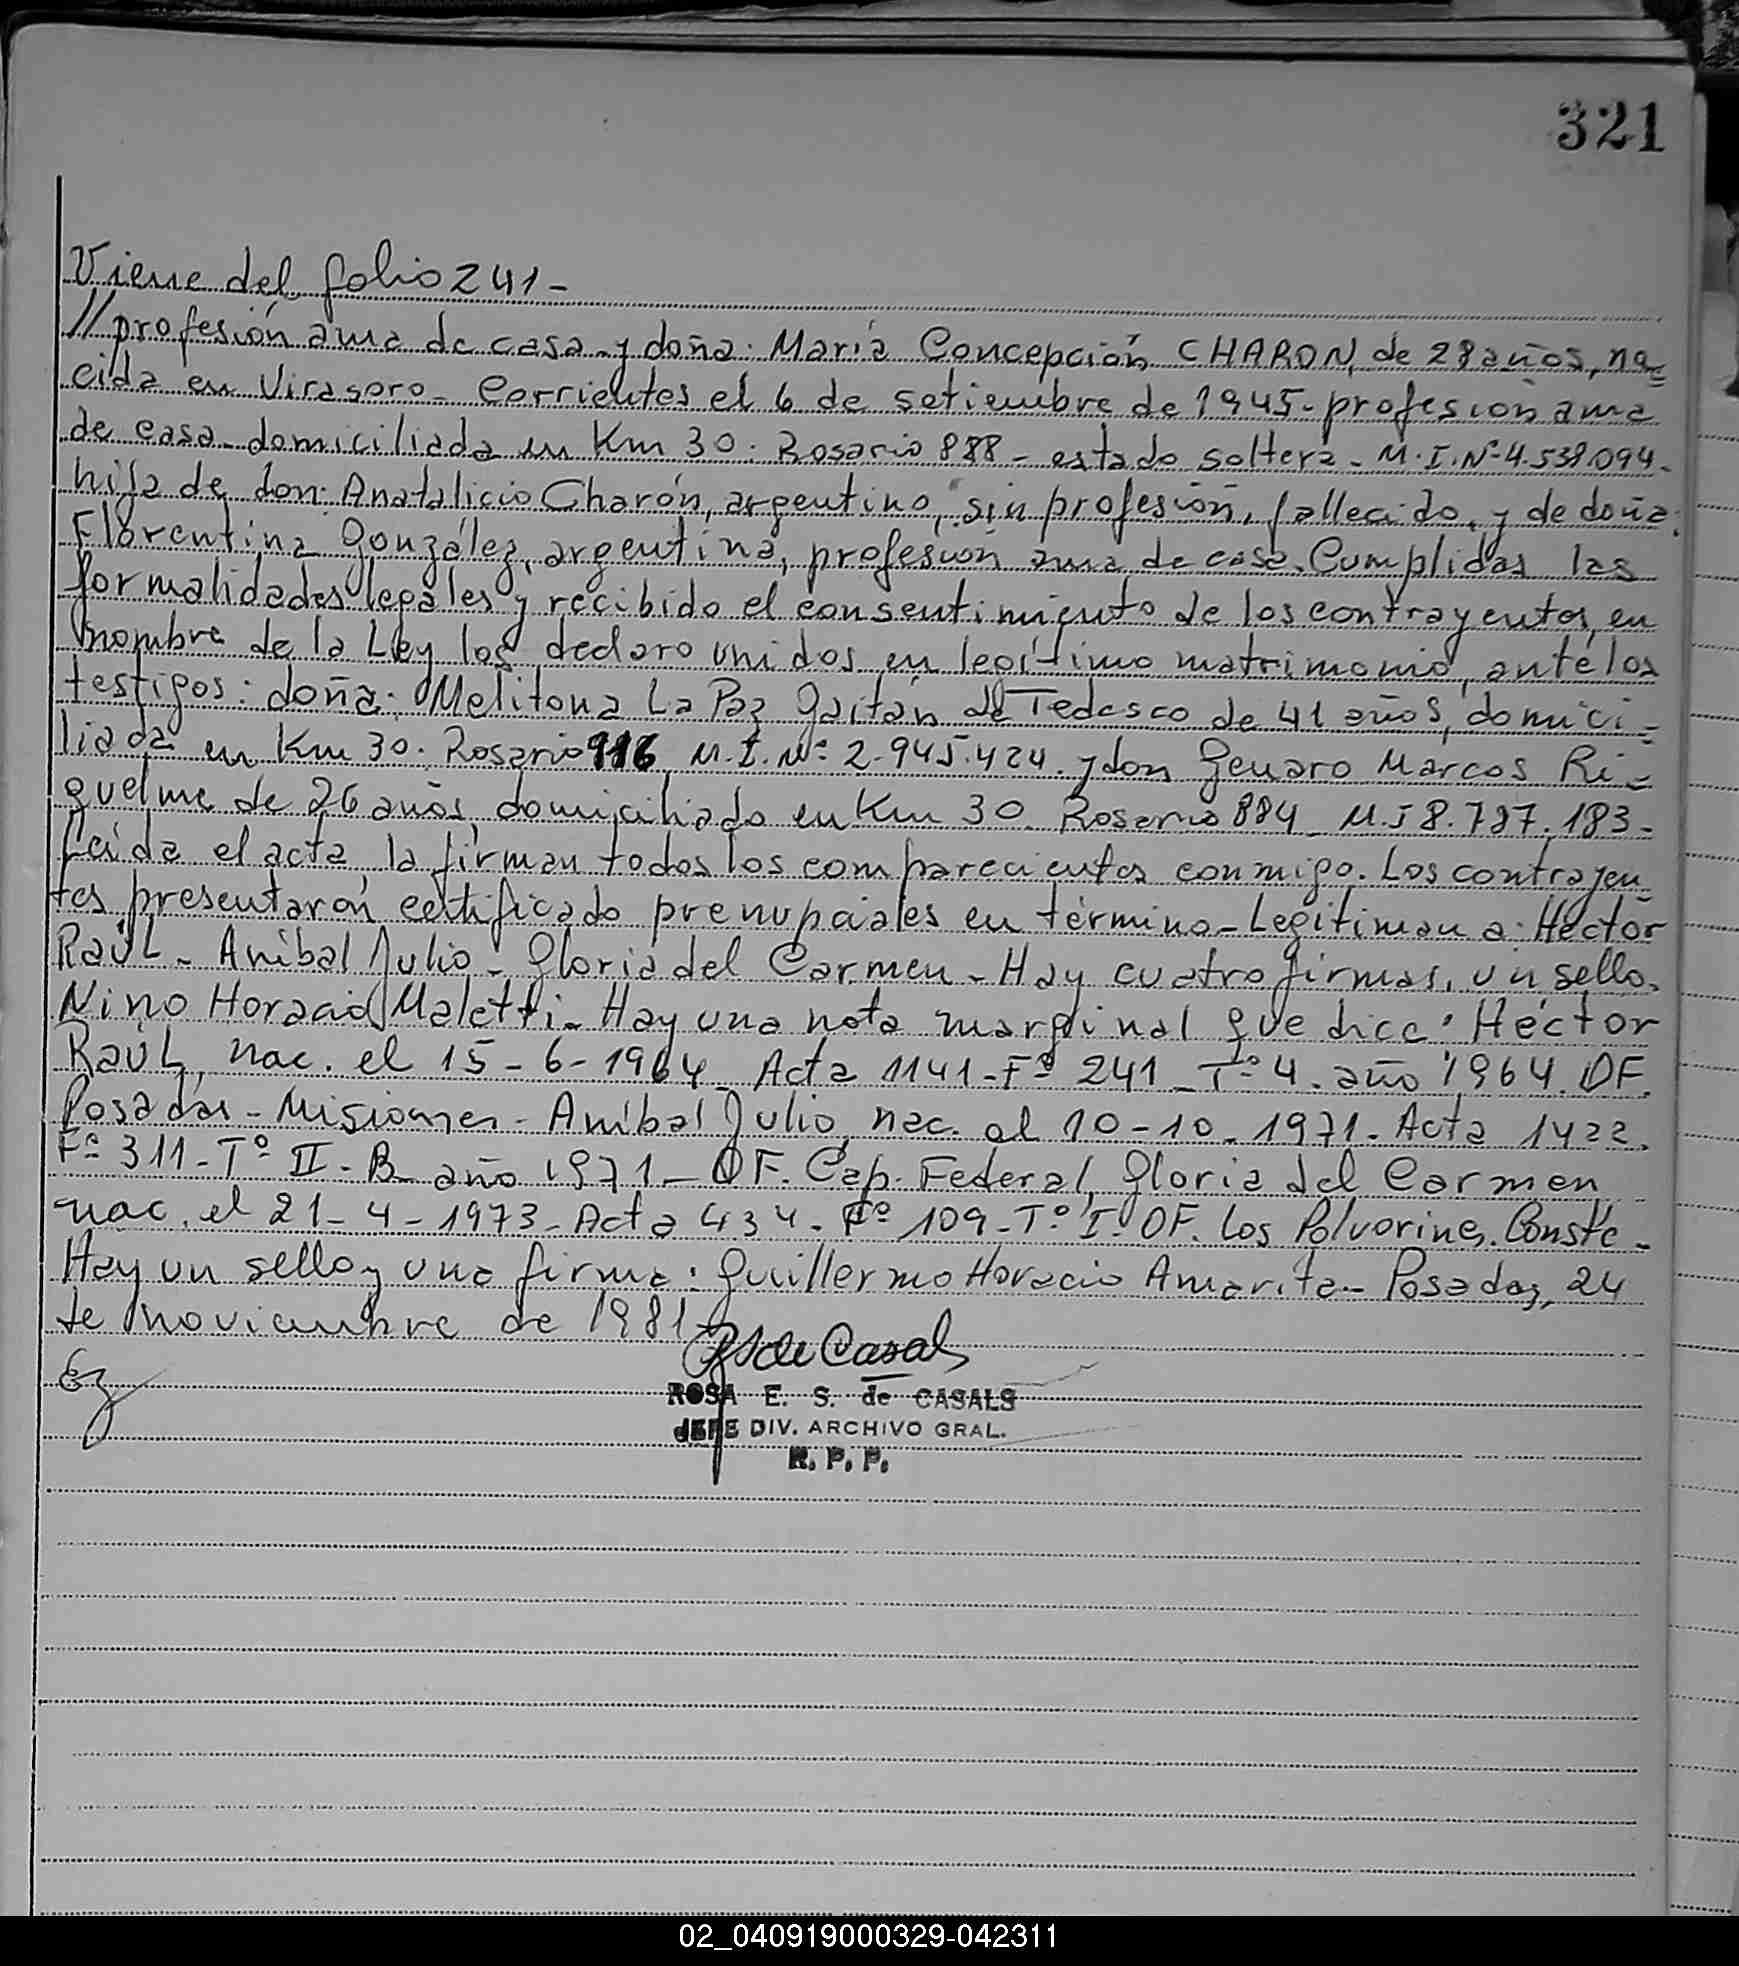 321
Viene del folio 241-
//profesión ama de casa y doña: María Concepción CHARON, de 28 años, na=
cida en Virasoro - Corrientes el 6 de setiembre de 1945- profesión ama
de casa - domiciliada en Km 30. Rosario 888 - estado soltera - M.I.Nº 4.538.094-
hija de don: Anatalicio Charón, argentino, sin profesión, fallecido, y de doña:
Florentina González, argentina, profesión ama de casa. Cumplidas las
formalidades legales y recibido el consentimiento de los contrayentes, en
nombre de la Ley los declaro unidos en legítimo matrimonio, ante los
testigos: doña: Melitona La Paz Gaitán de Tedesco de 41 años, domici=
liada en Km 30. Rosario 916 M.I.Nº: 2.945.424. y don Genaro Marcos Ri=
quelme de 26 años, domiciliado en Km 30. Rosario 884 M.I 8.787.183-
Leída el acta la firman todos los comparecientes conmigo. Los contrayen
tes presentarón certificado prenupciales en término - Legitiman a: Héctor
RaúL - Aníbal Julio - Gloria del Carmen - Hay cuatro firmas, un sello.
Nino Horacio Maletti - Hay una nota marginal que dice: Héctor
RaúL, nac. el 15-6-1964 Acta 1141-Fº 241 - Tº 4. año 1964 OF.
Posadas - Misiones - Aníbal Julio, nac. el 10-10-1971. Acta 1422.
Fº 311-Tº II-B año 1971- OF. Cap. Federal, Gloria del Carmen
nac. el 21-4-1973- Acta 434 - Fº 109-Tº I- OF. Los Polvorines. Conste -
Hay un sello y una firma: Guillermo Horacio Amarita - Posadas, 24
de noviembre de 1981
RSde Casals
ROSA E. S. de CASALS
JEFE DIV. ARCHIVO GRAL.
R. P. P.
02_040919000329-042311